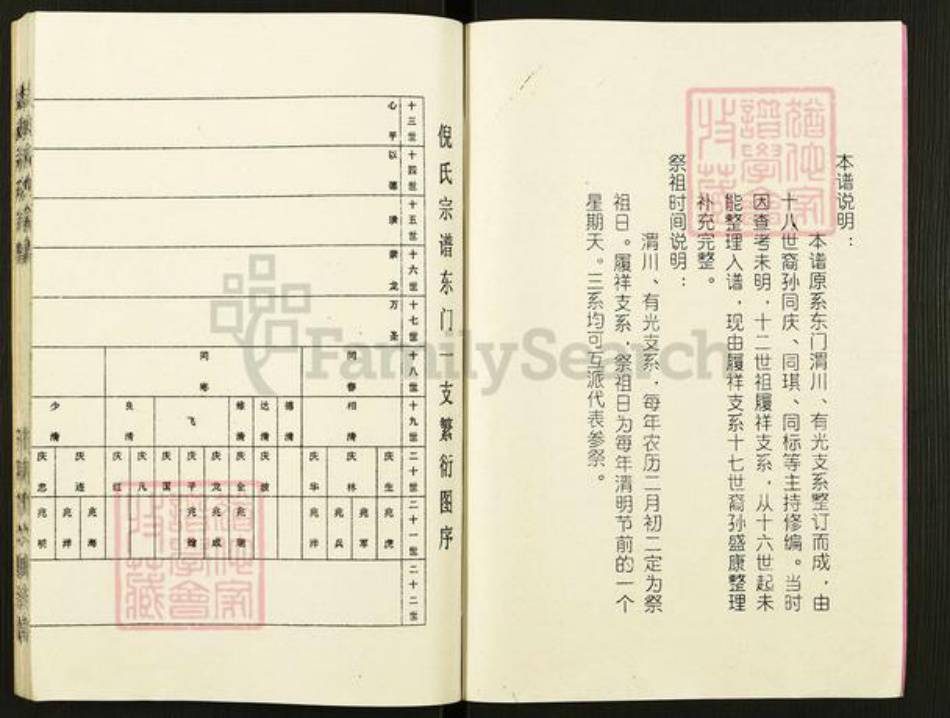 本谱说明：
本谱原系东门渭川、有光支系整订而成，由
十八世裔孙同庆、同琪、同标等主持修编。当时
因查考未明，十二世祖履祥支系，从十六世起未
能整理入谱，现由履祥支系十七世裔孙盛康整理
补充完整。
祭祖时间说明：
渭川、有光支系，每年农历二月初二定为祭
祖日。履祥支系，祭祖日为每年清明节前的一个
星期天。三系均可互派代表参祭。
倪氏宗谱东门一支繁衍图序
十三世 十四世 十五世 十六世 十七世 十八世 十九世 二十世 二十一世 二十二世
心平 以德 万圣
同春 同
相清 德清 达清 维清 飞 良清 少清
庆生 庆林 庆华 庆波 庆全 庆龙 庆平 庆国 庆凡 庆红 庆连 庆忠
兆虎 兆军 兆兵 兆洋 兆 兆成 兆 兆海 兆洋 兆明
FamilySearch